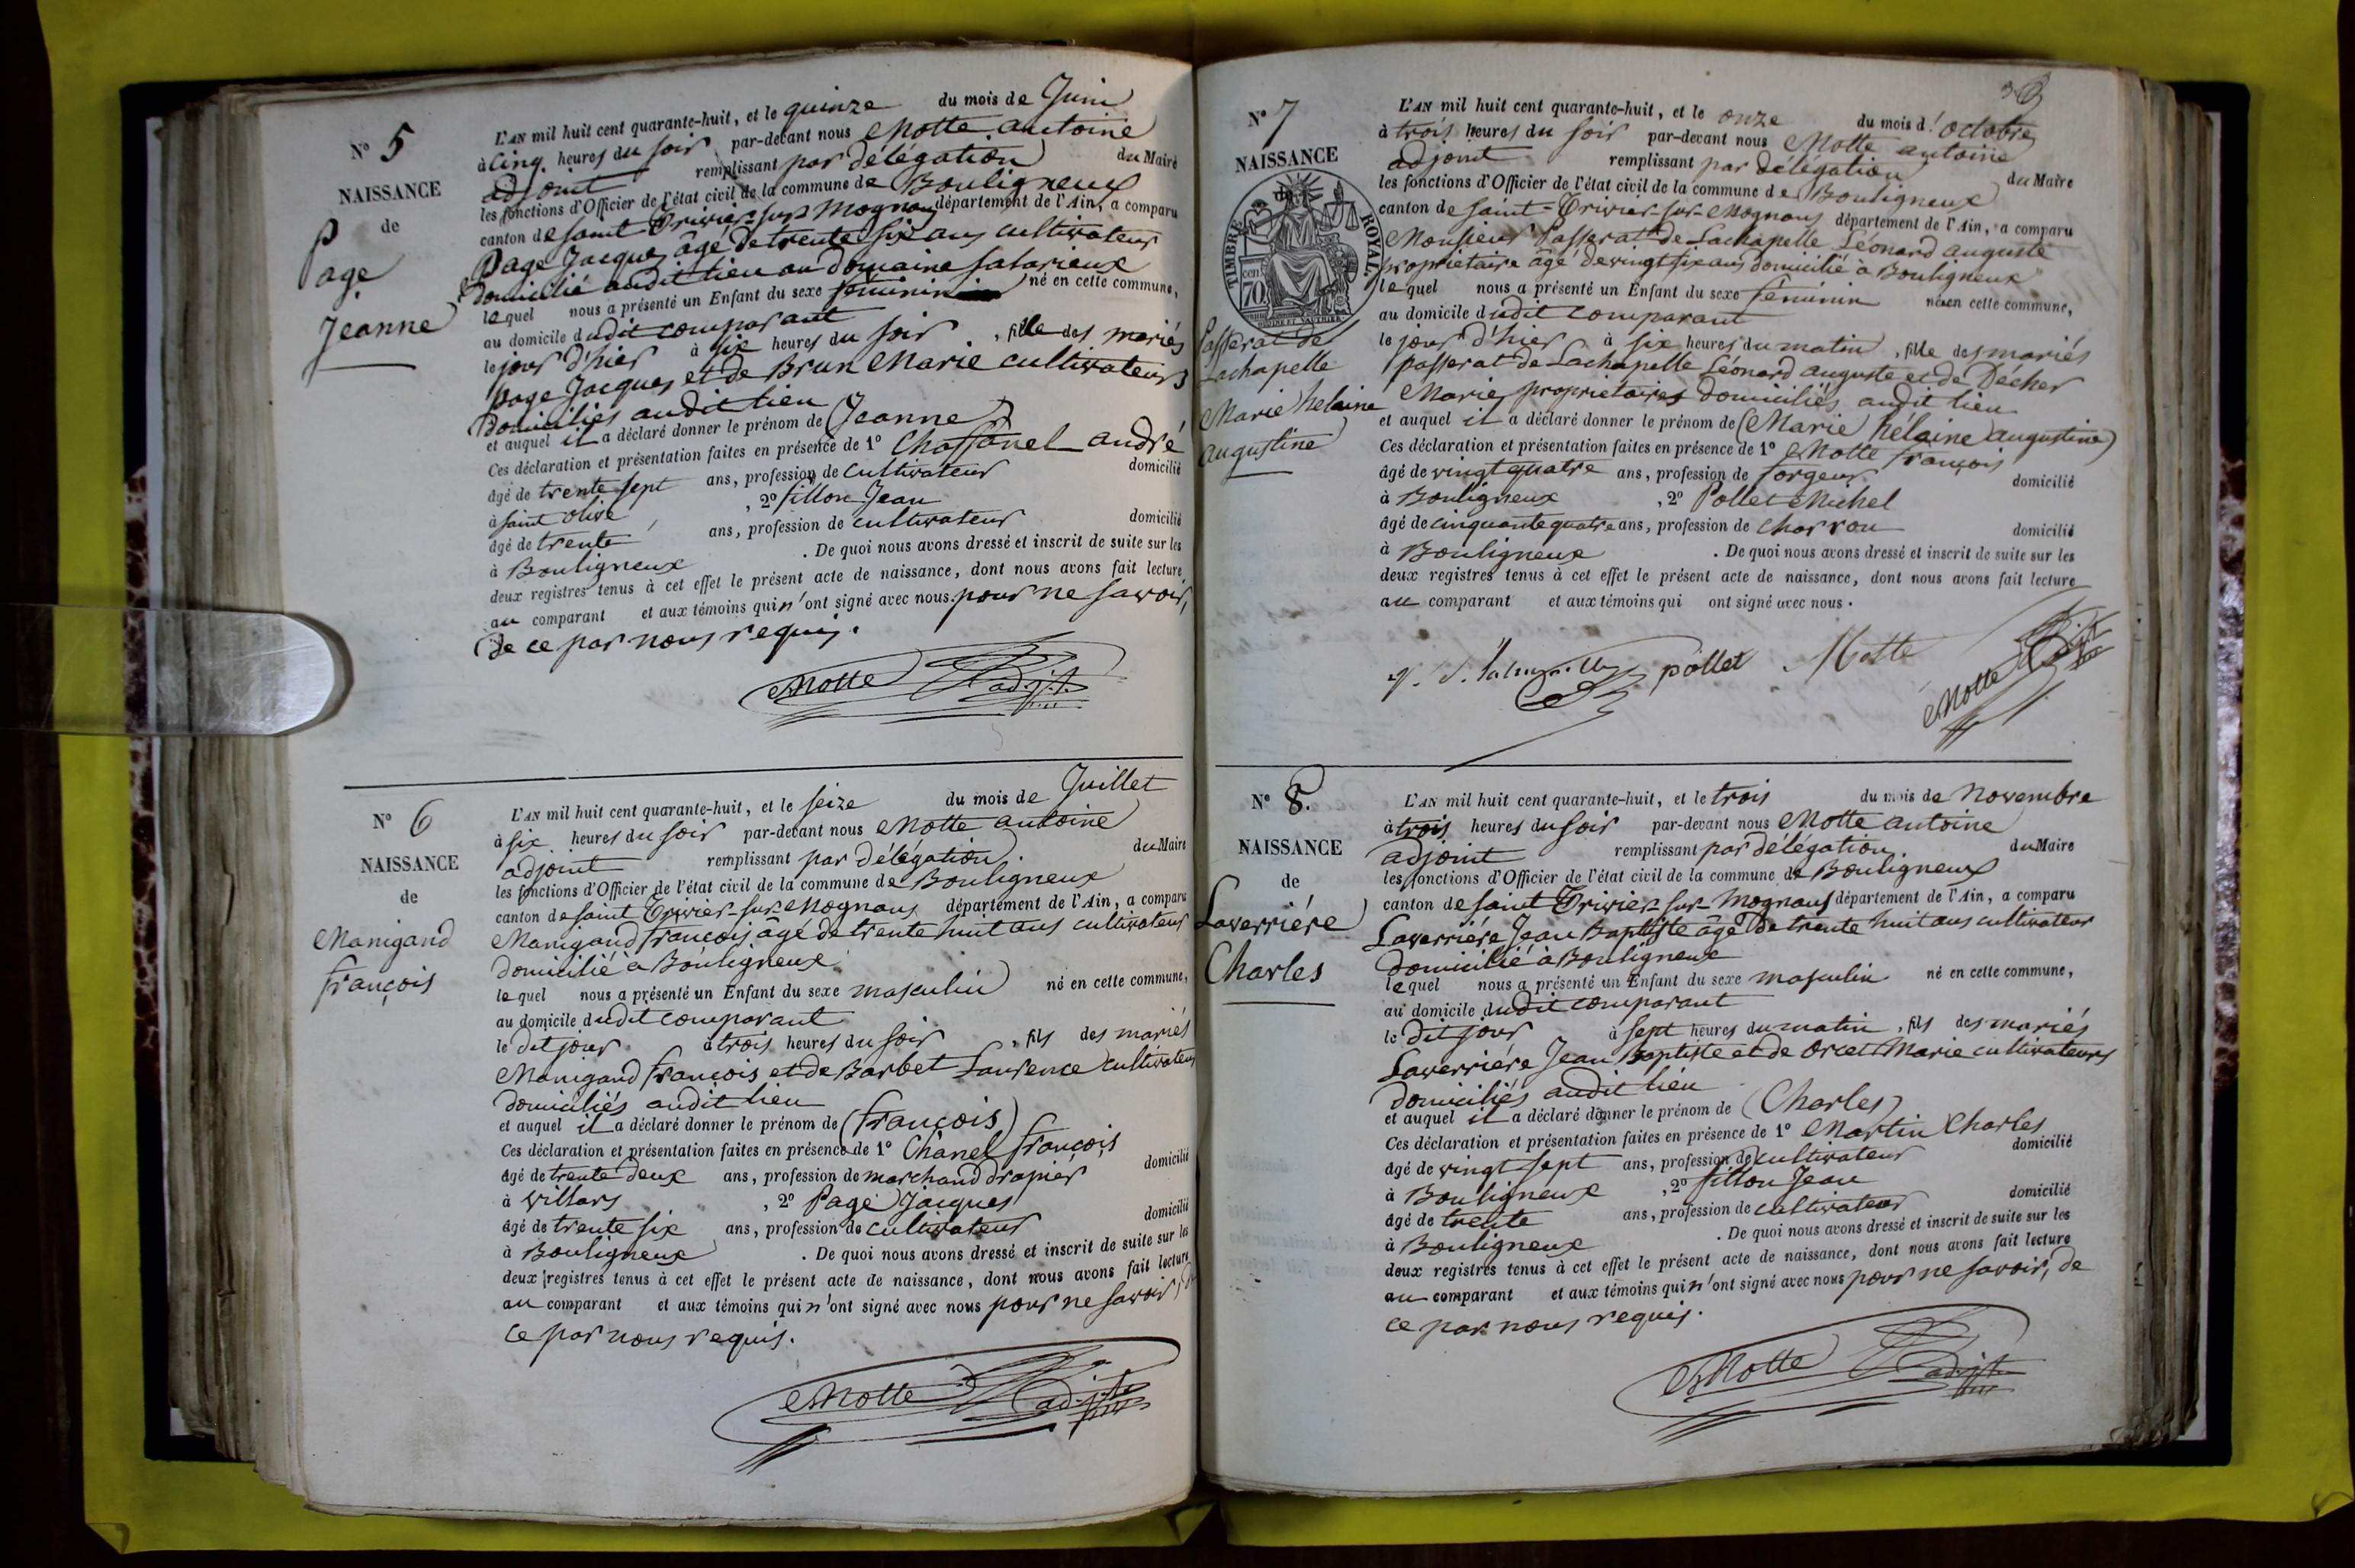 Nº 5
NAISSANCE
de
Page
Jeanne
L'AN mil huit cent quarante-huit, et le quinze du mois de Juin
à cinq heures du soir par-devant nous Motte antoine
adjoint remplissant par délégation du Maire
les fonctions d'Officier de l'état civil de la commune de Bouligneux
canton de saint Trivier-sur-Mognans département de l'Ain, a comparu
Page Jacques âgé de trente six ans cultivateur
domicilié audit lieu au domaine salarieux
lequel nous a présenté un Enfant du sexe féminin né en cette commune,
au domicile dudit comparant
le jour d'hier à six heures du soir, fille des mariés
Page Jacques et de Brun Marie cultivateurs
domiciliés audit lieu
et auquel il a déclaré donner le prénom de (Jeanne)
Ces déclaration et présentation faites en présence de 1º Chassanel andré
âgé de trente sept ans, profession de cultivateur domicilié
à saint olive, 2º fillon Jean
âgé de trente ans, profession de cultivateur domicilié
à Bouligneux. De quoi nous avons dressé et inscrit de suite sur les
deux registres tenus à cet effet le présent acte de naissance, dont nous avons fait lecture
au comparant et aux témoins qui n'ont signé avec nous pour ne savoir,
de ce par nous requis.
Motte adjt.
Nº 6
NAISSANCE
de
Manigand
françois
L'AN mil huit cent quarante-huit, et le seize du mois de Juillet
à six heures du soir par-devant nous Motte antoine
adjoint remplissant par délégation du Maire
les fonctions d'Officier de l'état civil de la commune de Bouligneux
canton de saint Trivier-sur-Mognans département de l'Ain, a comparu
Manigand françois âgé de trente huit ans cultivateur
domicilié à Bouligneux
lequel nous a présenté un Enfant du sexe masculin né en cette commune,
au domicile dudit comparant
le dit jour à trois heures du soir, fils des mariés
Manigand françois et de Barbet Laurence cultivateurs
domiciliés audit lieu
et auquel il a déclaré donner le prénom de (françois)
Ces déclaration et présentation faites en présence de 1º Chanel françois
âgé de trente deux ans, profession de marchand drapier domicilié
à villars, 2º Page Jacques
âgé de trente six ans, profession de cultivateur domicilié
à Bouligneux. De quoi nous avons dressé et inscrit de suite sur les
deux registres tenus à cet effet le présent acte de naissance, dont nous avons fait lecture
au comparant et aux témoins qui n'ont signé avec nous pour ne savoir, de
ce par nous requis.
Motte adjt.
Nº 7
NAISSANCE
de
TIMBRE ROYAL.
cent 70
Passerat de
Lachapelle
Marie hélaine
augustine
L'AN mil huit cent quarante-huit, et le onze du mois d'octobre
à trois heures du soir par-devant nous Motte antoine
adjoint remplissant par délégation du Maire
les fonctions d'Officier de l'état civil de la commune de Bouligneux
canton de saint-Trivier-sur-Mognans département de l'Ain, a comparu
Monsieur Passerat de Lachapelle Léonard auguste
propriétaire âgé de vingt six ans domicilié à Bouligneux
lequel nous a présenté un Enfant du sexe féminin né en cette commune,
au domicile dudit comparant
le jour d'hier à six heures du matin, fille des mariés
passerat de Lachapelle Léonard auguste et de Décher
Marie, propriétaires domiciliés audit lieu
et auquel il a déclaré donner le prénom de (Marie hélaine augustine)
Ces déclaration et présentation faites en présence de 1º Motte françois
âgé de vingt quatre ans, profession de forgeur domicilié
à Bouligneux, 2º Pollet Michel
âgé de cinquante quatre ans, profession de charron domicilié
à Bouligneux. De quoi nous avons dressé et inscrit de suite sur les
deux registres tenus à cet effet le présent acte de naissance, dont nous avons fait lecture
au comparant et aux témoins qui ont signé avec nous.
pollet Motte
Motte adjt
Nº 8.
NAISSANCE
de
Laverriére
Charles
L'AN mil huit cent quarante-huit, et le trois du mois de Novembre
à trois heures du soir par-devant nous Motte antoine
adjoint remplissant par délégation du Maire
les fonctions d'Officier de l'état civil de la commune de Bouligneux
canton de saint Trivier-sur-Mognans département de l'Ain, a comparu
Laverriére Jean Baptiste âgé de trente huit ans cultivateur
domicilié à Bouligneux
lequel nous a présenté un Enfant du sexe masculin né en cette commune,
au domicile dudit comparant
le dit jour à sept heures du matin, fils des mariés
Laverriére Jean Baptiste et de Orcet Marie cultivateurs
domiciliés audit lieu
et auquel il a déclaré donner le prénom de (Charles)
Ces déclaration et présentation faites en présence de 1º Martin Charles
âgé de vingt sept ans, profession de cultivateur domicilié
à Bouligneux, 2º fillon Jean
âgé de trente ans, profession de cultivateur domicilié
à Bouligneux. De quoi nous avons dressé et inscrit de suite sur les
deux registres tenus à cet effet le présent acte de naissance, dont nous avons fait lecture
au comparant et aux témoins qui n'ont signé avec nous pour ne savoir, de
ce par nous requis.
Motte adjt.